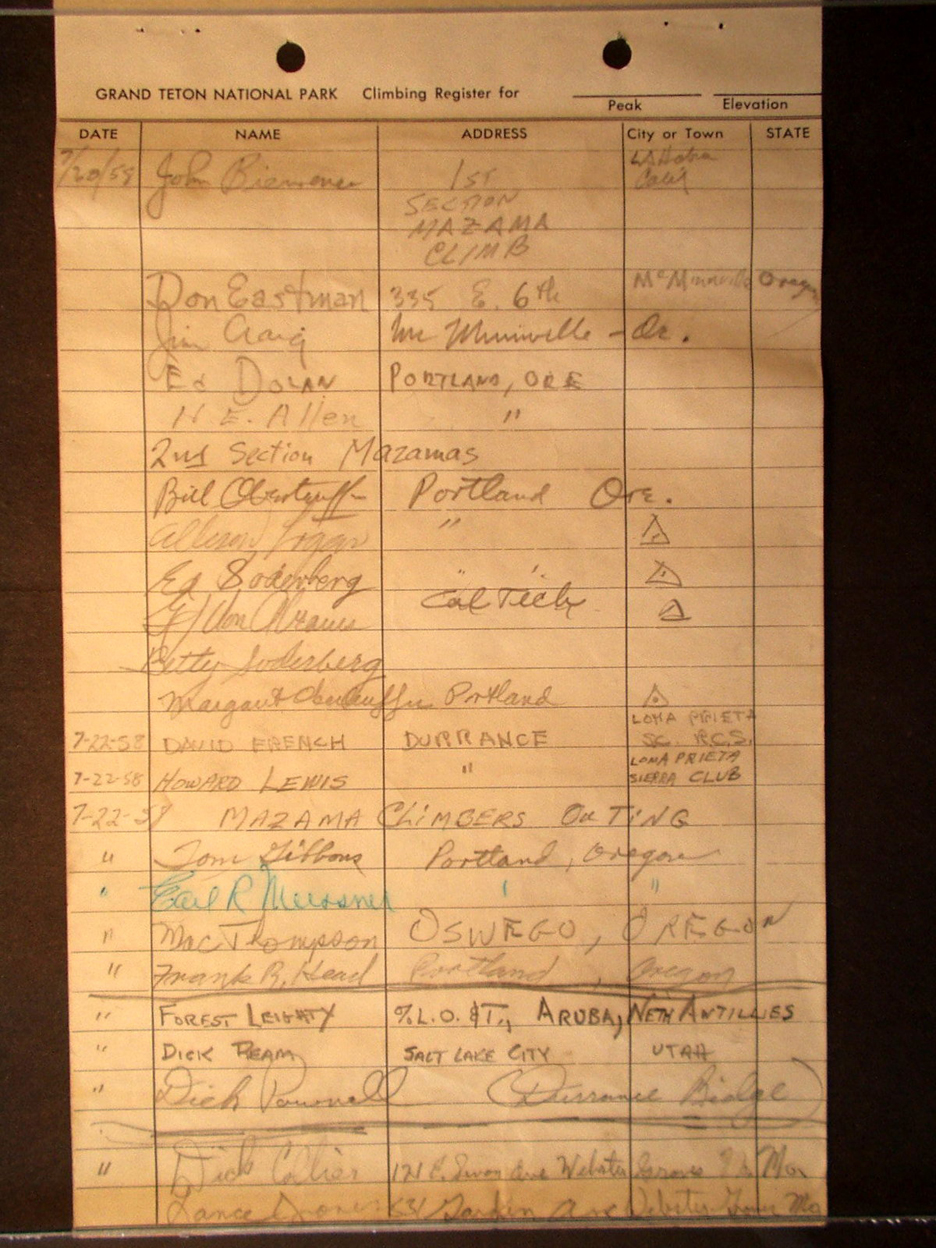 GRAND TETON NATIONAL PARK Climbing Register for
Peak Elevation
DATE NAME ADDRESS City or Town STATE
7/20/58 John 1ST La Habra
Calif
SECTION
MAZAMA
CLIMB
Don Eastman 335 E. 6th McMinnville Oregon
Jim Craig Mc Minnville - Or.
Ed Dolan PORTLAND, ORE
H. E. Allen "
2nd Section Mazamas
Bill Oberteuffer Portland Ore.
Allison "
Ed Soderberg "
Cal Tech
Betty Soderberg
Margaret Oberteuffer Portland
LOMA PRIETA
7-22-58 DAVID FRENCH DURRANCE SC. R.C.S.
LOMA PRIETA
7-22-58 HOWARD LEWIS " SIERRA CLUB
7-22-58 MAZAMA CLIMBERS OUTING
" Tom Gibbons Portland, Oregon
" Earl R Meissner " "
" Mac Thompson OSWEGO, OREGON
" Frank R. Head Portland, Oregon
" FOREST LEIGHTY %L.O. &T., ARUBA, NETH ANTILLIES
" DICK SALT LAKE CITY UTAH
" Dick Pownall (Durrance Ridge)
" Dick Collier 121 E. Swon Ave Webster Groves Mo
Lance Ave Webster Groves Mo